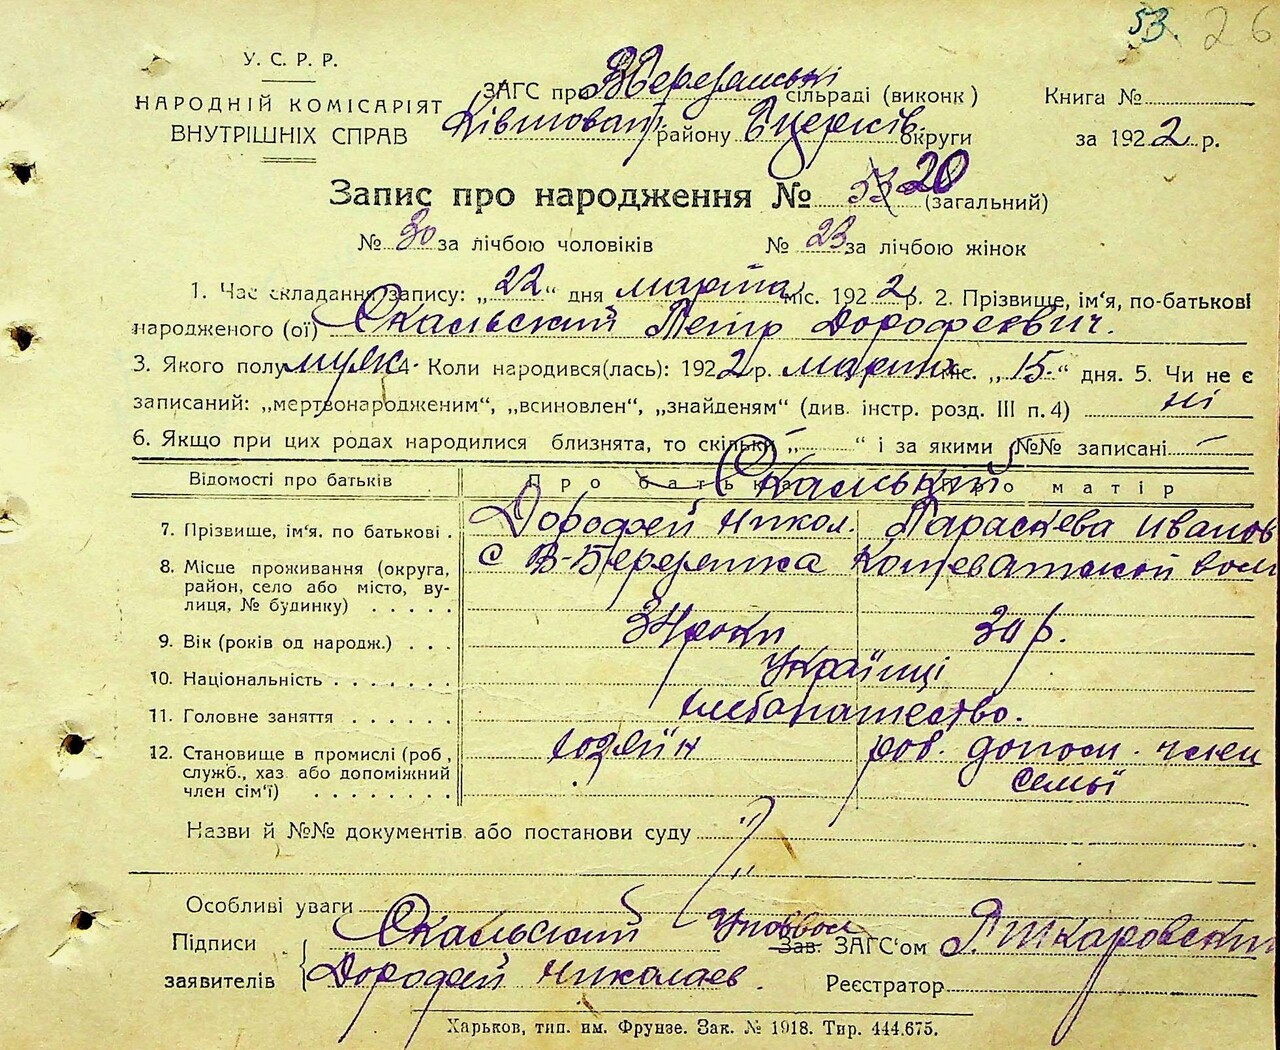 53. 26
У. С. Р. Р.
НАРОДНІЙ КОМІСАРІЯТ
ВНУТРІШНІХ СПРАВ
ЗАГС при сільраді (виконк)
району Бцерків. округи
Книга №
за 1922 р.
Запис про народження № 53 20 (загальний)
№ 30 за лічбою чоловіків № 23 за лічбою жінок
1. Час складання запису: „22“ дня марта міс. 1922 р. 2. Прізвище, ім‘я, по-батькові
народженого (ої) Скальский Петр Дорофеевич.
3. Якого полу муж. 4 Коли народився(лась): 1922 р. марта міс. „15.“ дня. 5. Чи не є
записаний: „мертвонародженим“, „всиновлен“, „знайденям“ (див. інстр. розд. III п. 4) ні
6. Якщо при цих родах народилися близнята, то скільки „ “ і за якими №№ записані —
Відомості про батьків Про батька Про матір
Скальский
7. Прізвище, ім‘я, по батькові . Дорофей Никол. Параскева Иванов
8. Місце проживання (округа,
район, село або місто, вулиця, № будинку) . . . . . с В-Березянка
9. Вік (років од народж.) . . . 34 роки 30 р.
10. Національність . . . . . . . Українці
11. Головне заняття . . . . . . хлебопашество.
12. Становище в промислі (роб,
служб., хаз або допоміжний
член сім‘ї) . . . . . . . . хозяїн роб. допом. член
семьї
Назви й №№ документів або постанови суду „
„
Особливі уваги
Підписи
заявителів
Скальский
Дорофей Николаев.
Зав. ЗАГС‘ом
Реєстратор
Харьков, тип. им. Фрунзе. Зак. № 1918. Тир. 444.675.